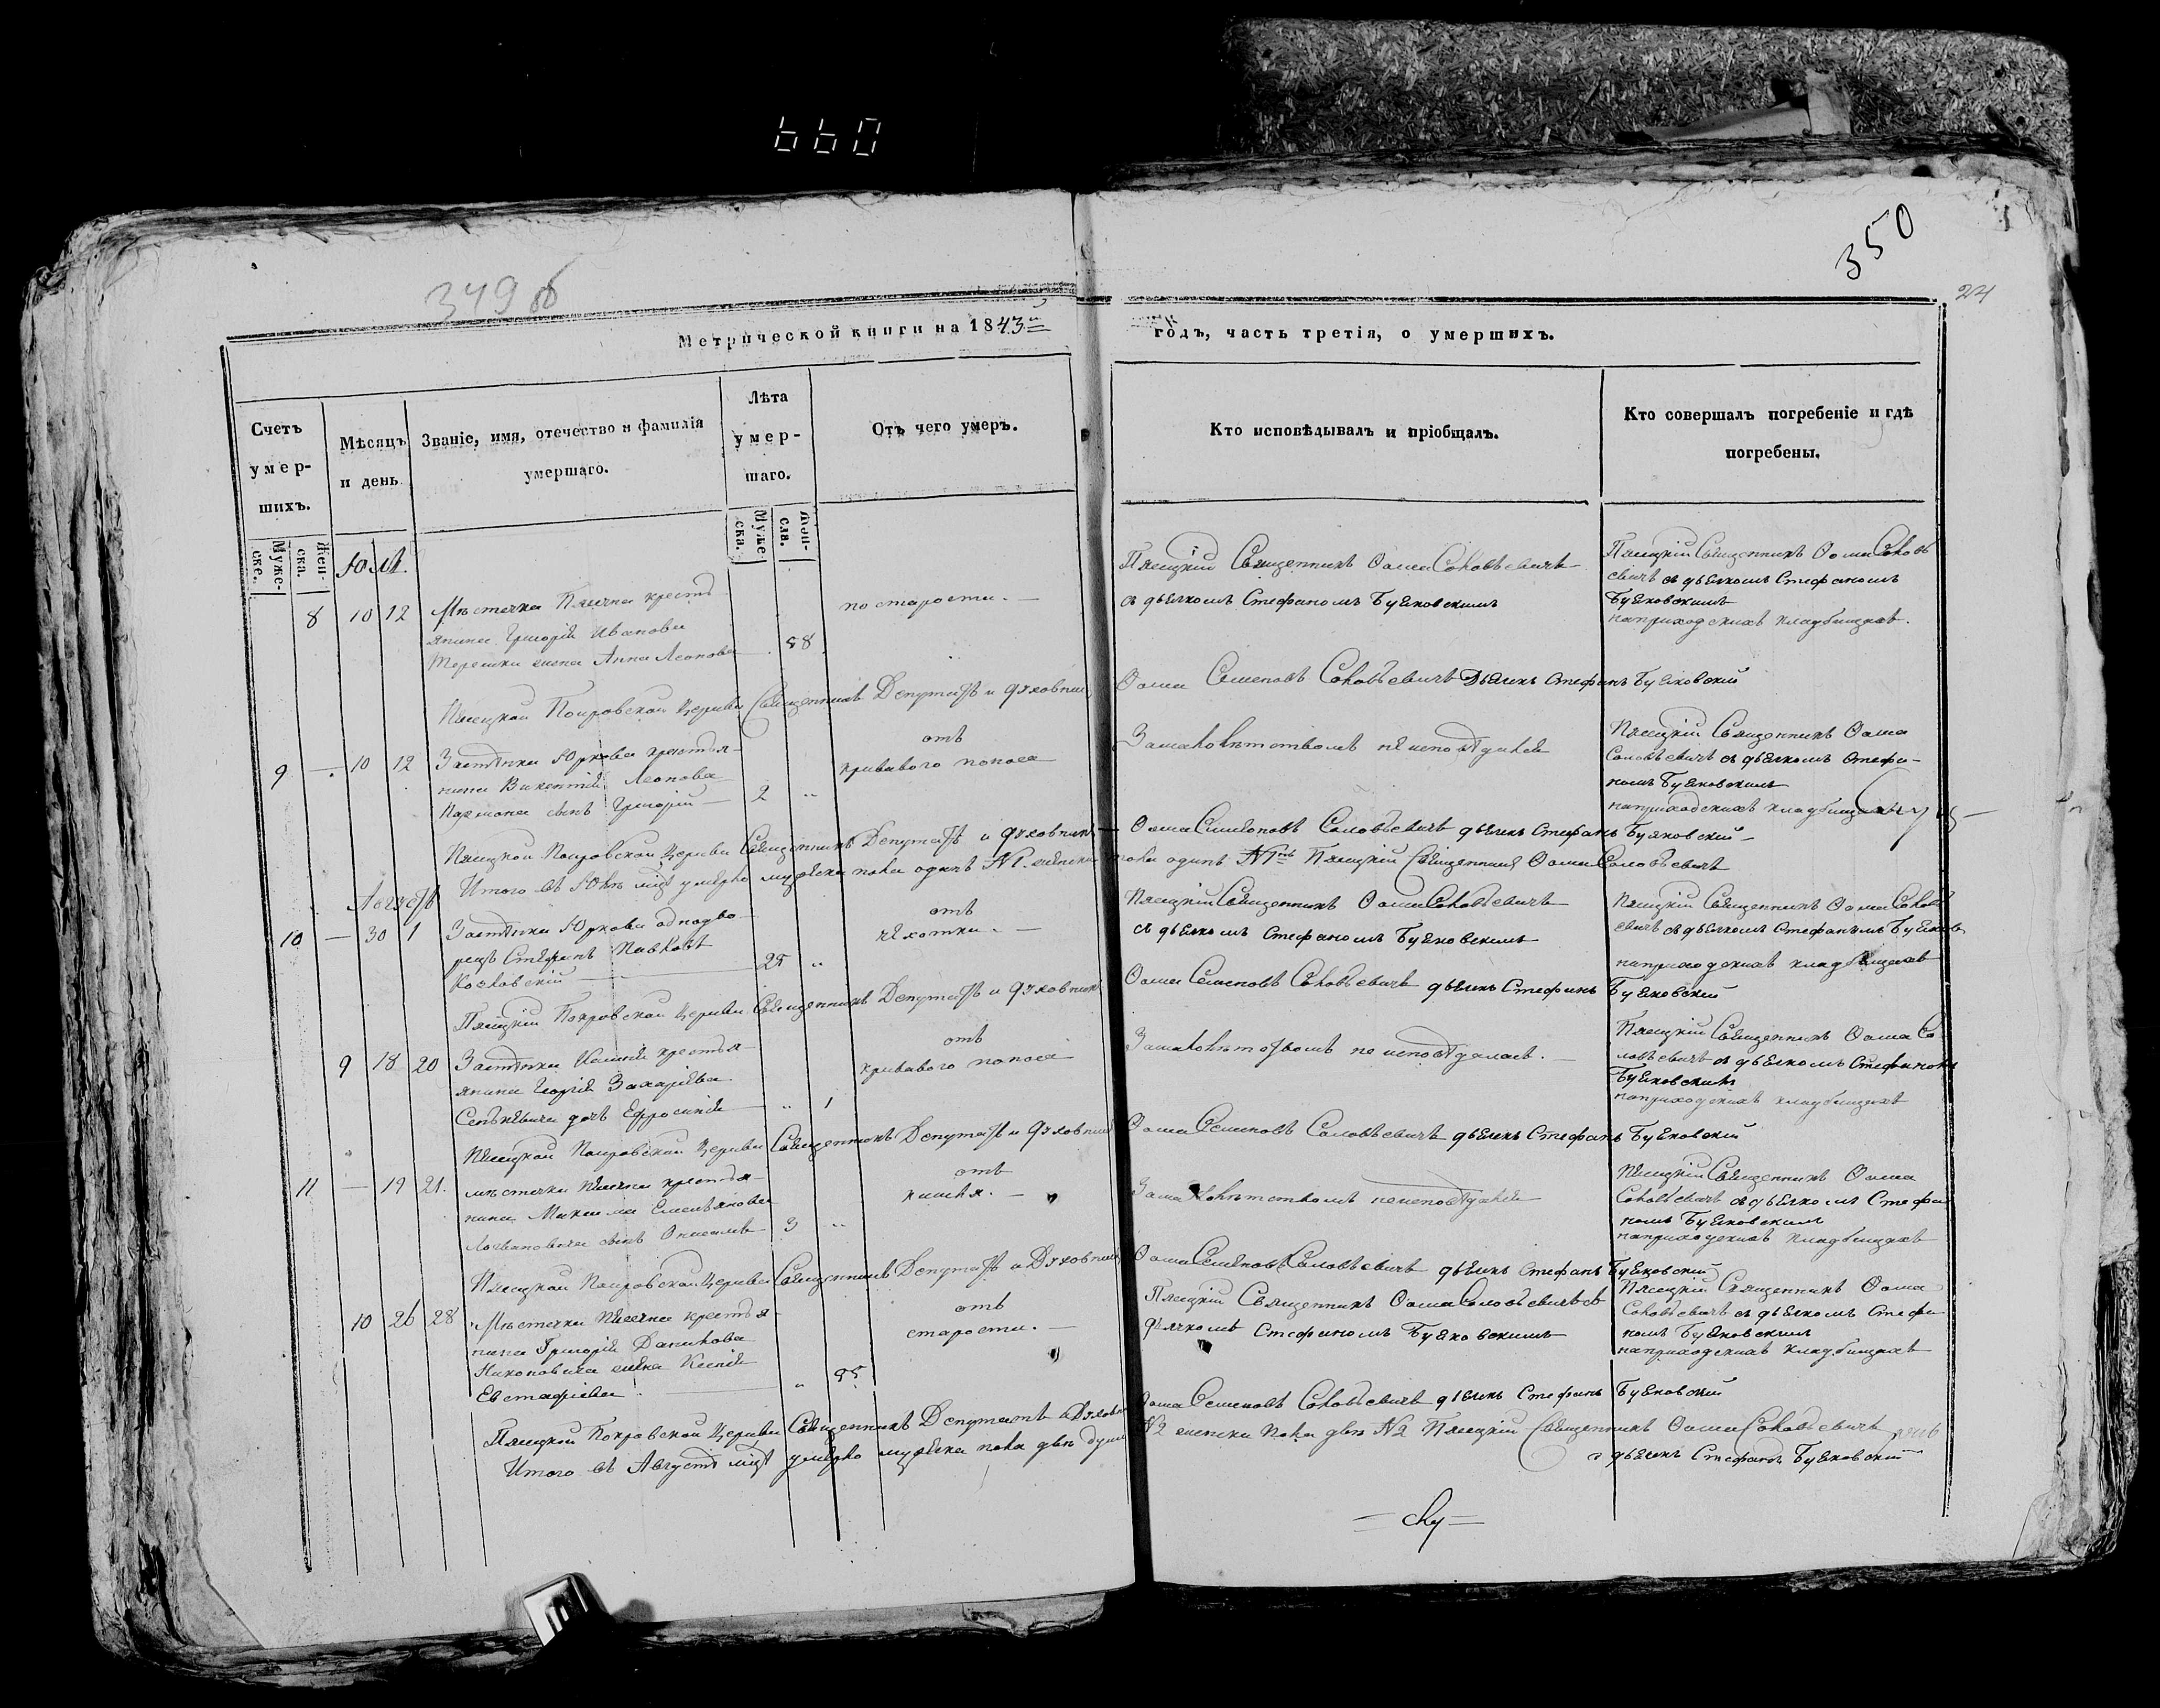 660
350
24
349 об
Метрической книги на 1843й годъ, часть третія, о умершихъ.
Счетъ умер-шихъ.
Мѣсяцъ и день
Званіе, имя, отечество и фамилія умершаго.
Лѣта умер-шаго.
Отъ чего умеръ.
Кто исповѣдывалъ и пріобщалъ.
Кто совершалъ погребеніе и гдѣ погребены.
Муже-ска.
Жен-ска.
Муже-ска.
Жен-ска.
8 10 12
Мѣстечка Пясчна крестья
янина Григорія Иванова
жена Анна Леонова
по старости.
Пясецкій Священникъ Ѳома Соловьевичъ
съ дьячкомъ Стефаномъ Буяковскимъ
Пясецкій Священникъ Ѳома Соловь
евичъ съ дьячкомъ Стефаномъ
Буяковскимъ
на приходскихъ кладбищахъ.
Пясецкой Покровской Церкви Священникъ Депутатъ и Духовник Ѳома Семеновъ Соловьевичъ Дьячекъ Стефанъ Буяковскій
9 — 10 12
Застѣнка Юркова крестья-
нина Викентія Леонова
сынъ Григорій — 2 „
отъ
криваваго поноса
За малолѣтствомъ не исповѣдыванъ
Пясецкій Священникъ Ѳома
Соловьевичъ съ дьячкомъ Стефа-
номъ Буяковскимъ
на приходскихъ кладбищахъ
Пясецкой Покровской Церкви Священникъ Депутатъ и Духовник Ѳома Семеновъ Соловьевичъ дьячекъ Стефанъ Буяковскій
Итого въ Юлѣ мцѣ умерло мужеска пола одинъ №1. женска пола одинъ №1 Пясецкій Священникъ Ѳома Соловьевичъ
Августъ
10 — 30 1
Застѣнка Юркова однодво-
рецъ Стефанъ Павловъ
Козловскій — 25 „
отъ
чехотки. —
Пясецкій Священникъ Ѳома Соловьевичъ
съ дьячкомъ Стефаномъ Буяковскимъ
Пясецкій Священникъ Ѳома Соловь
евичъ съ дьячкомъ Стефаномъ Буяковс
на приходскихъ кладбищахъ
Пясецкій Покровской Церкви Священникъ Депутатъ и Духовник Ѳома Семеновъ Соловьевичъ дьячекъ Стефанъ Буяковскій
9 18 20
Застѣнка крестья
янина Георгія Захаріева
дочь Ефросинія „ 1
отъ
криваваго поноса
За малолѣтствомъ не исповѣдалась. —
Пясецкій Священникъ Ѳома Со
ловьевичъ съ дьячкомъ Стефаномъ
Буяковскимъ
на приходскихъ кладбищахъ
Пясецкой Покровской Церкви Священникъ Депутатъ и Духовник Ѳома Семеновъ Соловьевичъ дьячекъ Стефанъ Буяковскій
11 — 19 21.
мѣстечка Пясчна крестья-
нина Максима Емельянова
сынъ 3 „
отъ
кашля. —
За малолѣтствомъ не исповѣдыванъ
Пясецкій Священникъ Ѳома
Соловьевичъ съ дьячкомъ Стефа
номъ Буяковскимъ
на приходскихъ кладбищахъ
Пясецкой Покровской Церкви Священникъ Депутатъ и Духовник Ѳома Семеновъ Соловьевичъ дьячекъ Стефанъ Буяковскій
10 26 28
Мѣстечка Пясечна крестья-
нина Григорія Данилова
жена Ксенія
Евстафіева „ 95
отъ
старости. —
Пясецкій Священникъ Ѳома Соловьевичъ съ
дьячкомъ Стефаномъ Буяковскимъ
Пясецкій Священникъ Ѳома
Соловьевичъ съ дьячкомъ Стефа
номъ Буяковскимъ
на приходскихъ кладбищахъ
Пясецкой Покровской Церкви Священникъ Депутатъ и Духовн Ѳома Семеновъ Соловьевичъ дьячекъ Стефанъ Буяковскій
Итого въ Августѣ мцѣ умерло мужеска пола двѣ души №2 женска пола двѣ №2 Пясецкій Священникъ Ѳома Соловьевичъ
дьячекъ Стефанъ Буяковскій